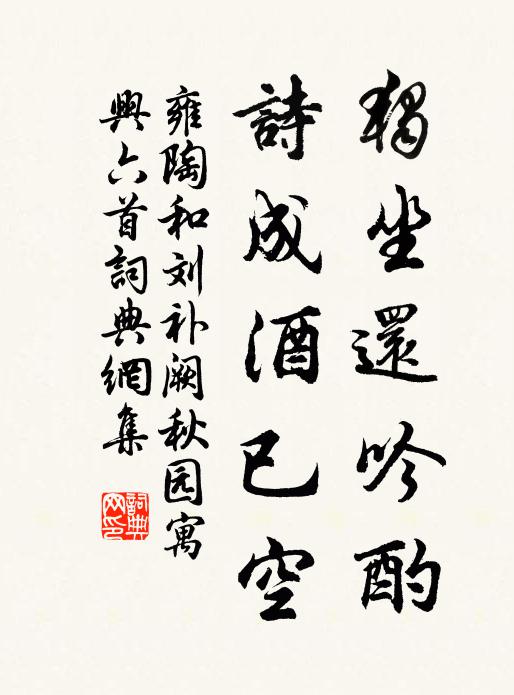 獨坐還吟酌
詩成酒已空
雍陶和刘补阙秋园寓
興六首詞典網集
詞典網印